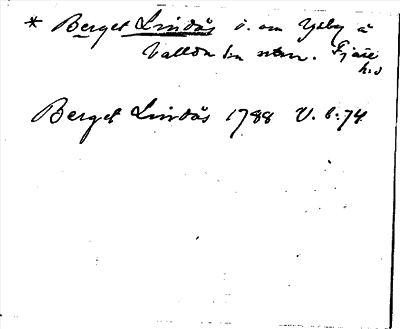 * Berget Lindås ö. om Ysby å
Vallda sn. Fjäre
h:d
Berget Lindås 1788 V. 6. 74